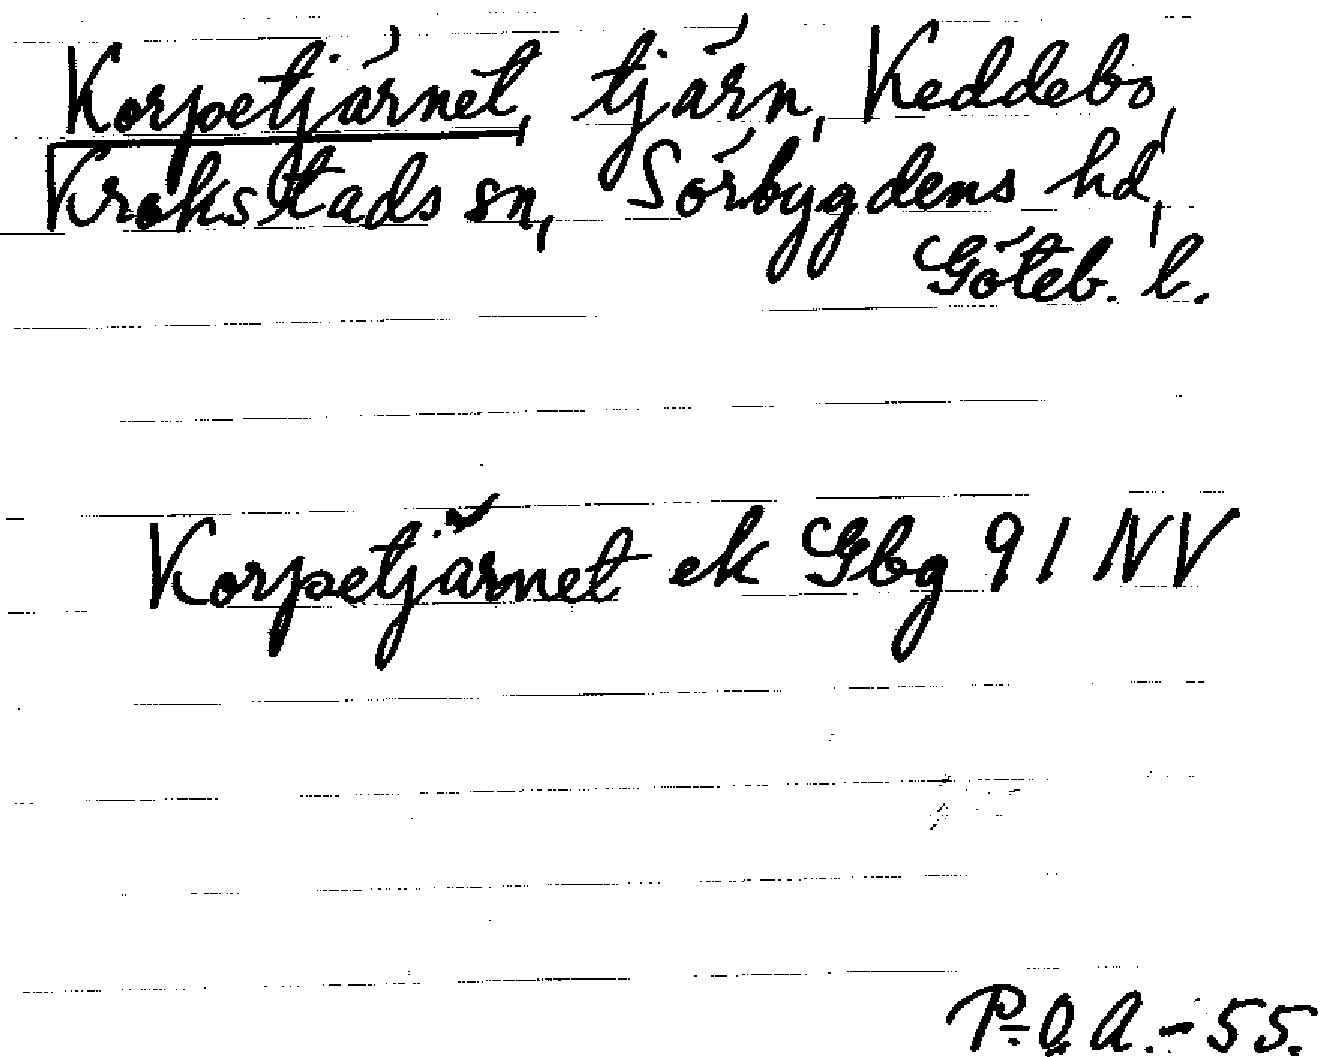 Korpetjärnet, tjärn, Keddebo,
Krokstads sn, Sörbygdens hd,
Göteb. l.
Korpetjärnet ek Gbg 91 NV
P-O. A. - 55.